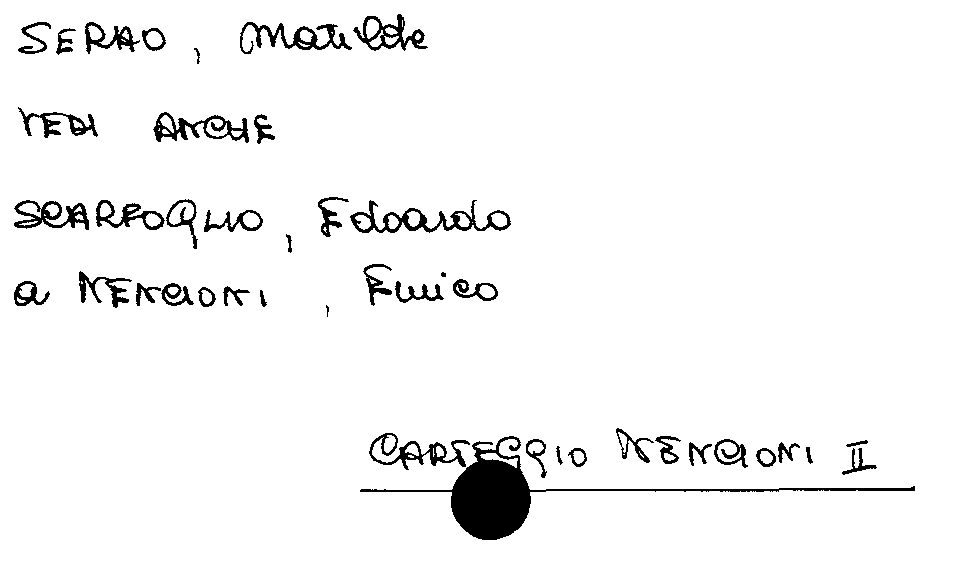 SERAO, Matilde
VEDI ANCHE
SCARFOGLIO, Edoardo
a NENCIONI, Enrico
CARTEGGIO NENCIONI II